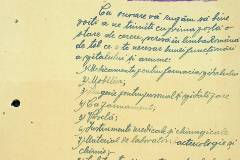 Cu onoare vă rugăm să bine
voiți a ne trimite cu prima poștă o
stare de cerere, pe românește
de tot ce e necesar bunei funcționări
a spitalului și anume:
1) Medicamente pentru farmacia spitalului
2) Mobilier
3) pentru personal și spitalizare
4) Cazarmament
5) Veselă
6) Instrumente medicale și chirurgicale
7) Material de laborator: bacteriologie și
chimie